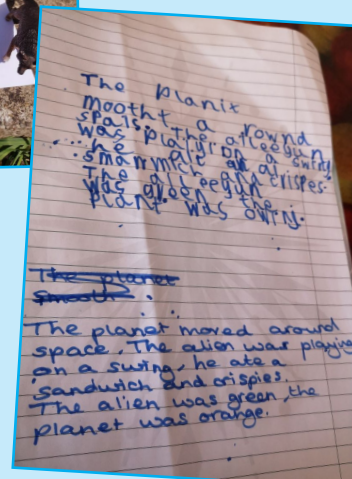 The planit
mootht a rownd
spals. The alleegun
was platyron a swing
...he ate a
smanmich an crispes.
The alleegun
was green the
plant was owing.
The planet
smooth
The planet moved around
space. The alien was playing
on a swing, he ate a
sandwich and crispies.
The alien was green, the
planet was orange.